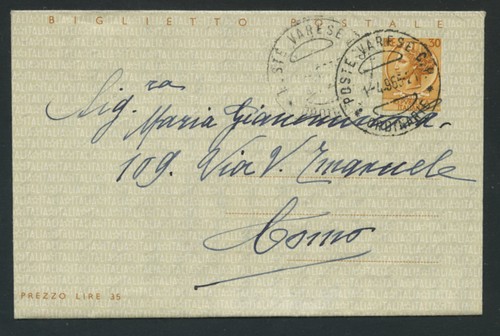 BIGLIETTO POSTALE
30
POSTE VARESE
POSTE VARESE C.P.
ORDINARIE
Sig.ra
Maria
109. Via V. Emanuele
Como
PREZZO LIRE 35